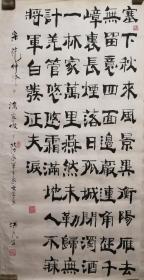 塞下秋來風景異衡陽雁去
無留意四面邊聲連角起千
嶂裏長煙落日孤城閉濁酒
一杯家萬里燕然未勒歸無
計羌管悠悠霜滿地人不寐
將軍白髮征夫淚